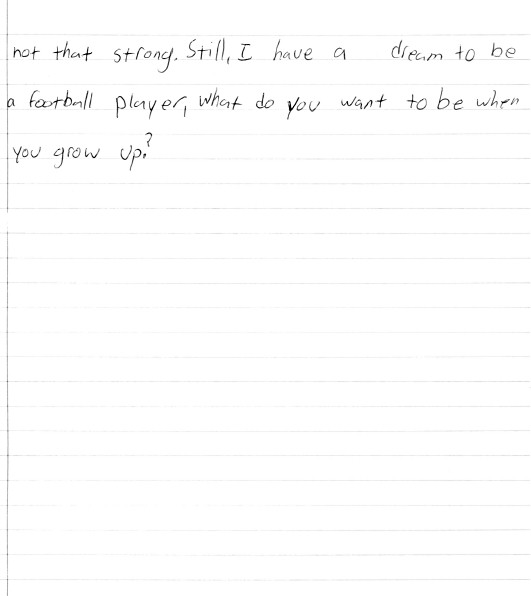 not that strong. Still, I have a dream to be
a football player, what do you want to be when
you grow up.?